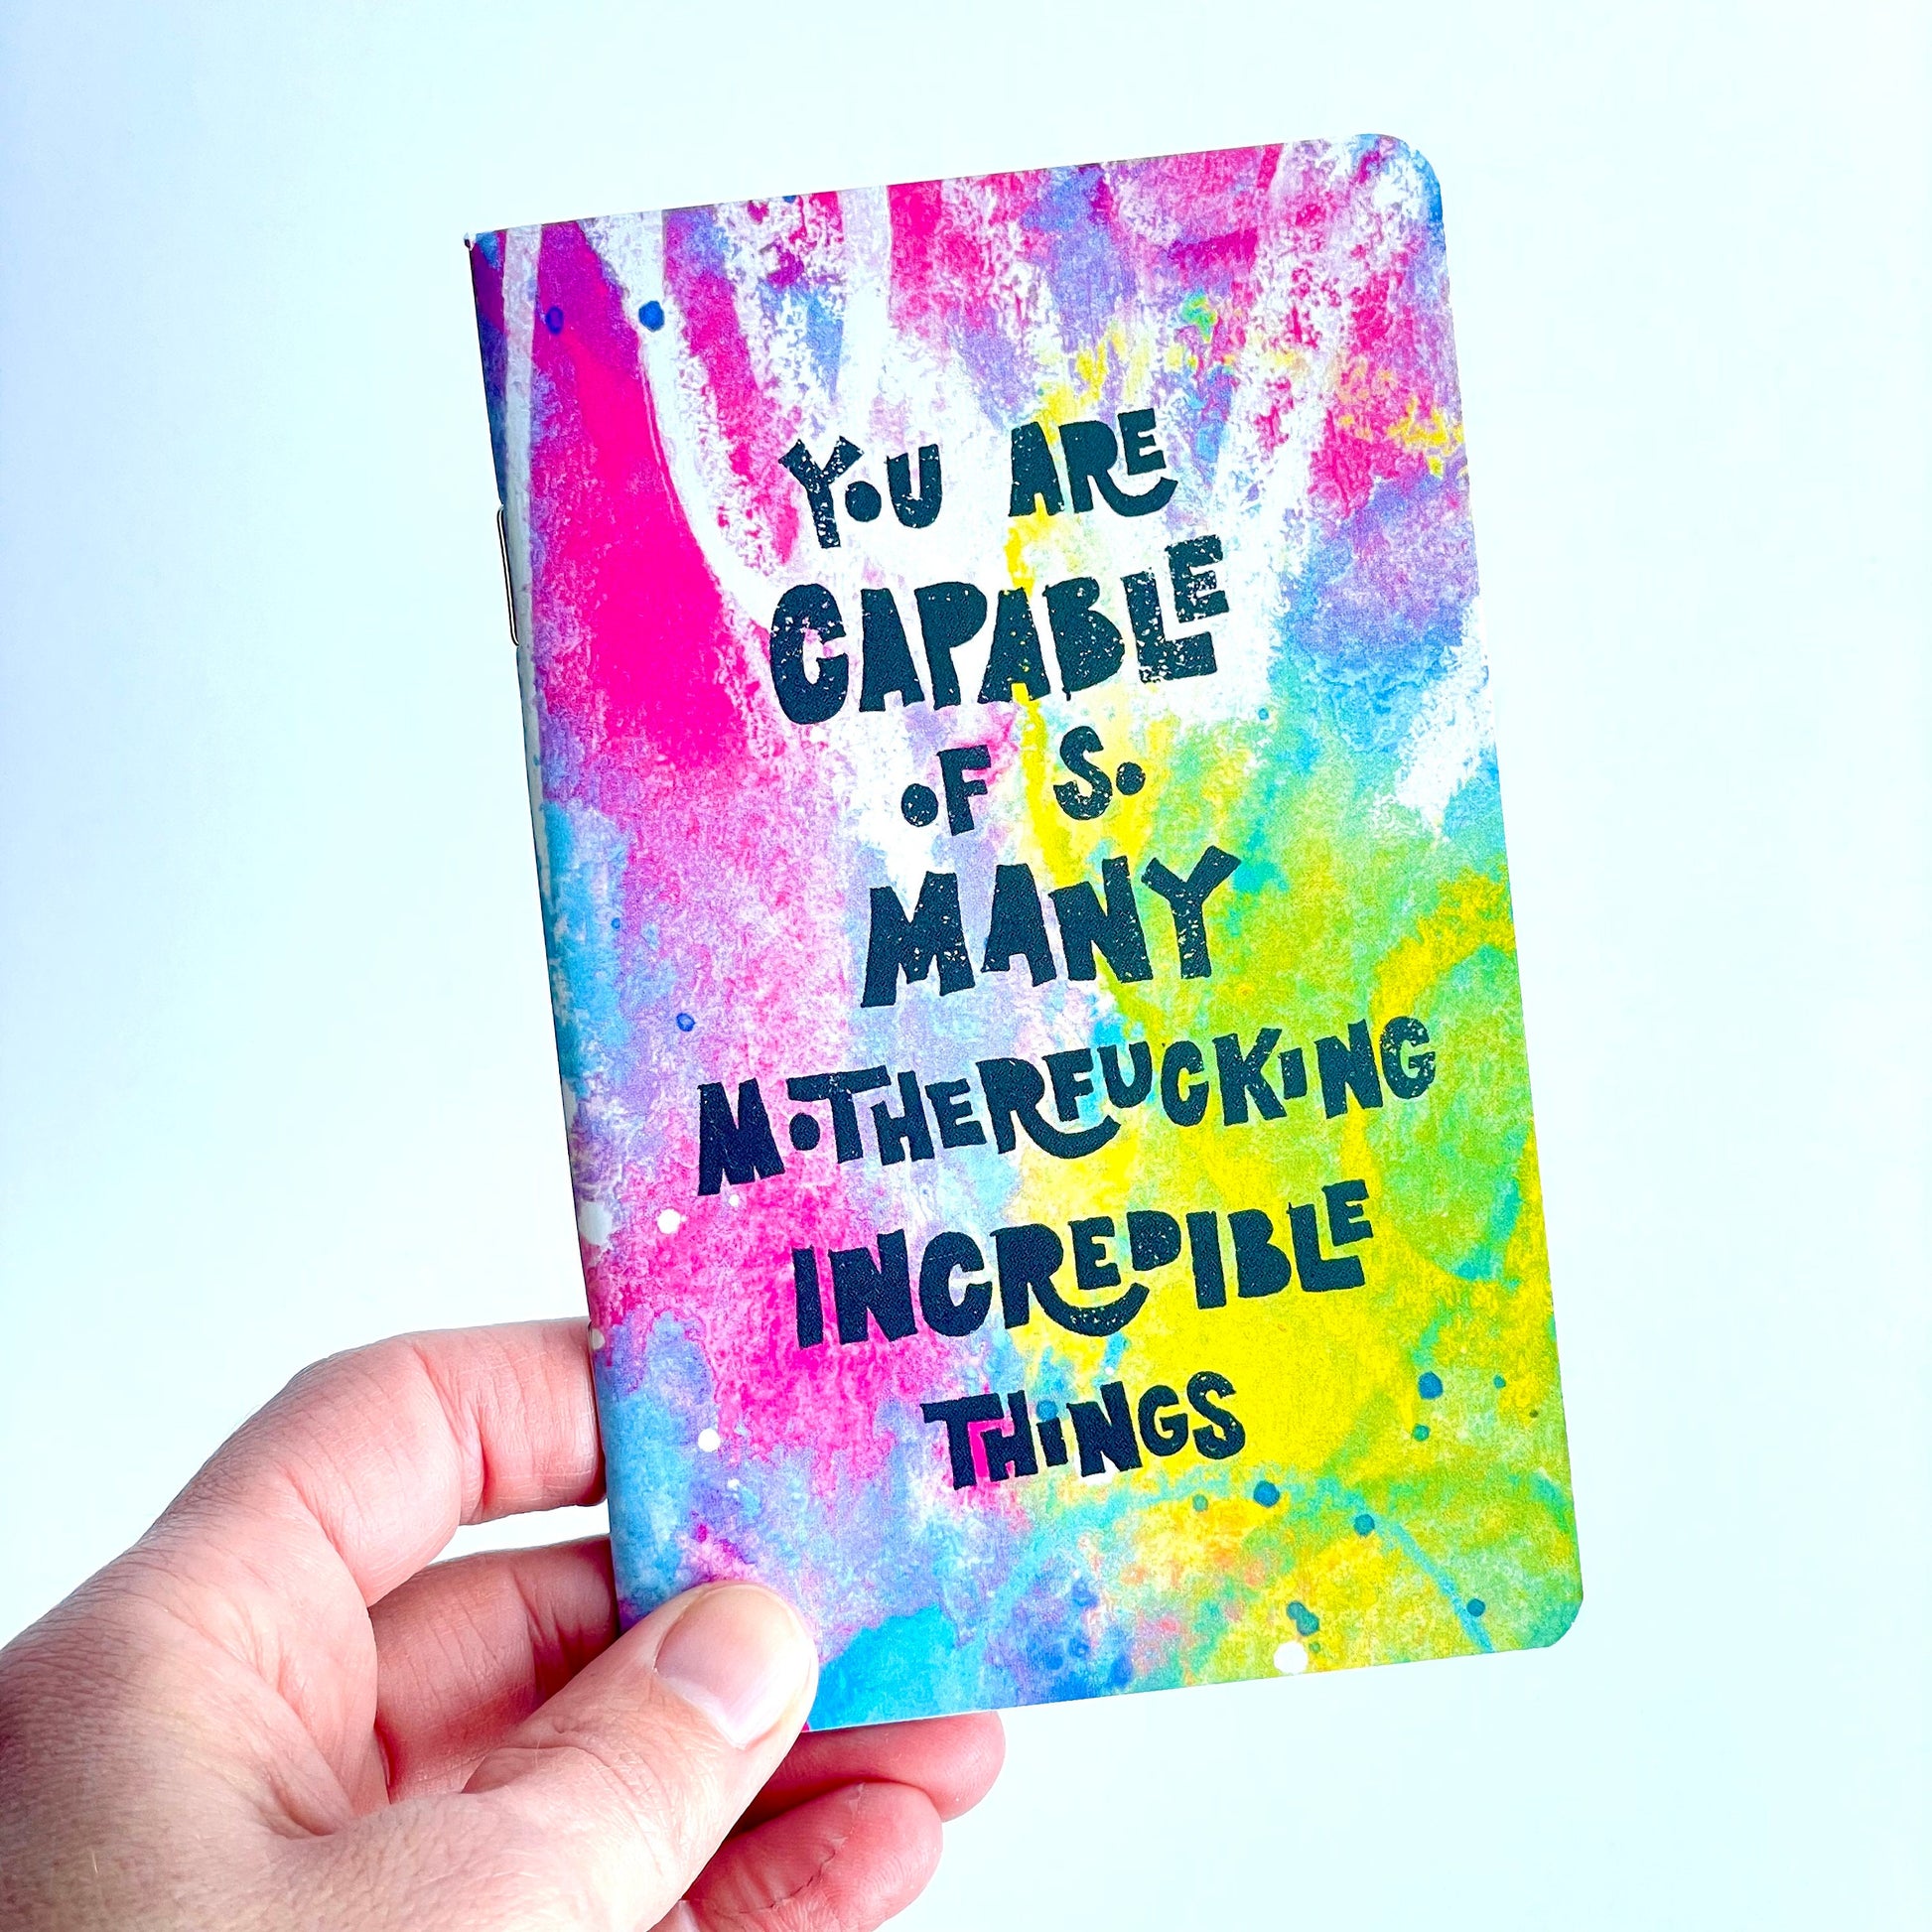 YOU ARE
CAPABLE
OF SO
MANY
MOTHERFUCKING
INCREDIBLE
THINGS